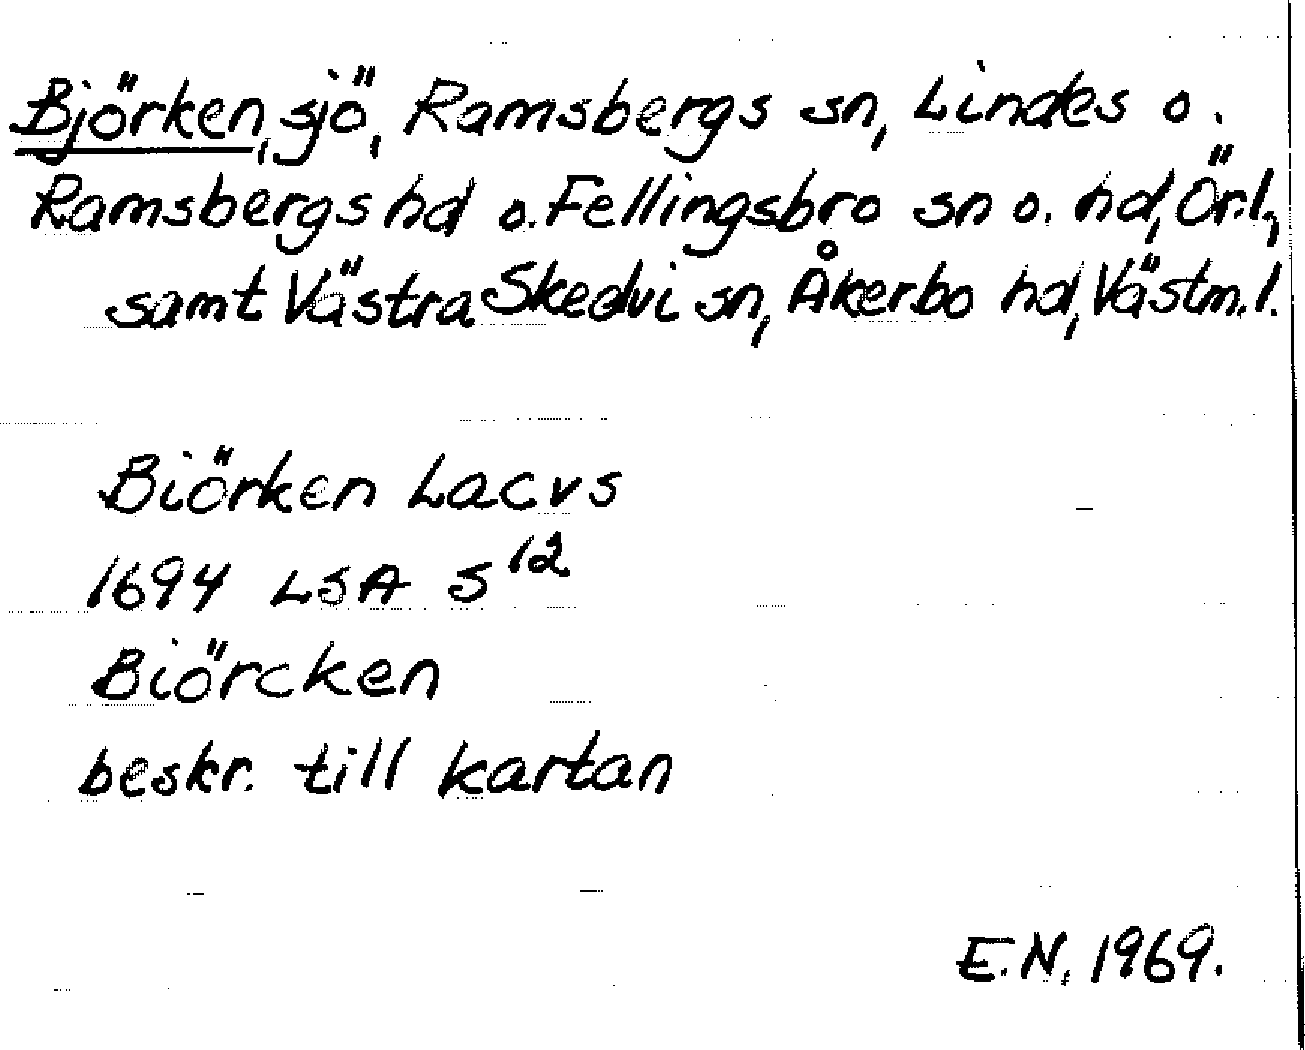 Björken, sjö, Ramsbergs sn, Lindes o.
Ramsbergs hd o. Fellingsbro sn o. hd, Ör.l.,
samt Västra Skedvi sn, Åkerbo hd, Västm.l.
Biörken Lacvs
1694 LSA S 12
Biörcken
beskr. till kartan
E.N. 1969.